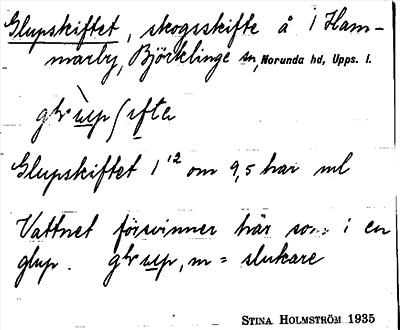 Glupskiftet, skogsskifte å 1 Ham-
marby, Björklinge sn, Norunda hd, Upps. l.
Glupskiftet 1¹² om 9,5 har ml
Vattnet försvinner här som i en
glup. m = slukare
STINA HOLMSTRÖM 1935